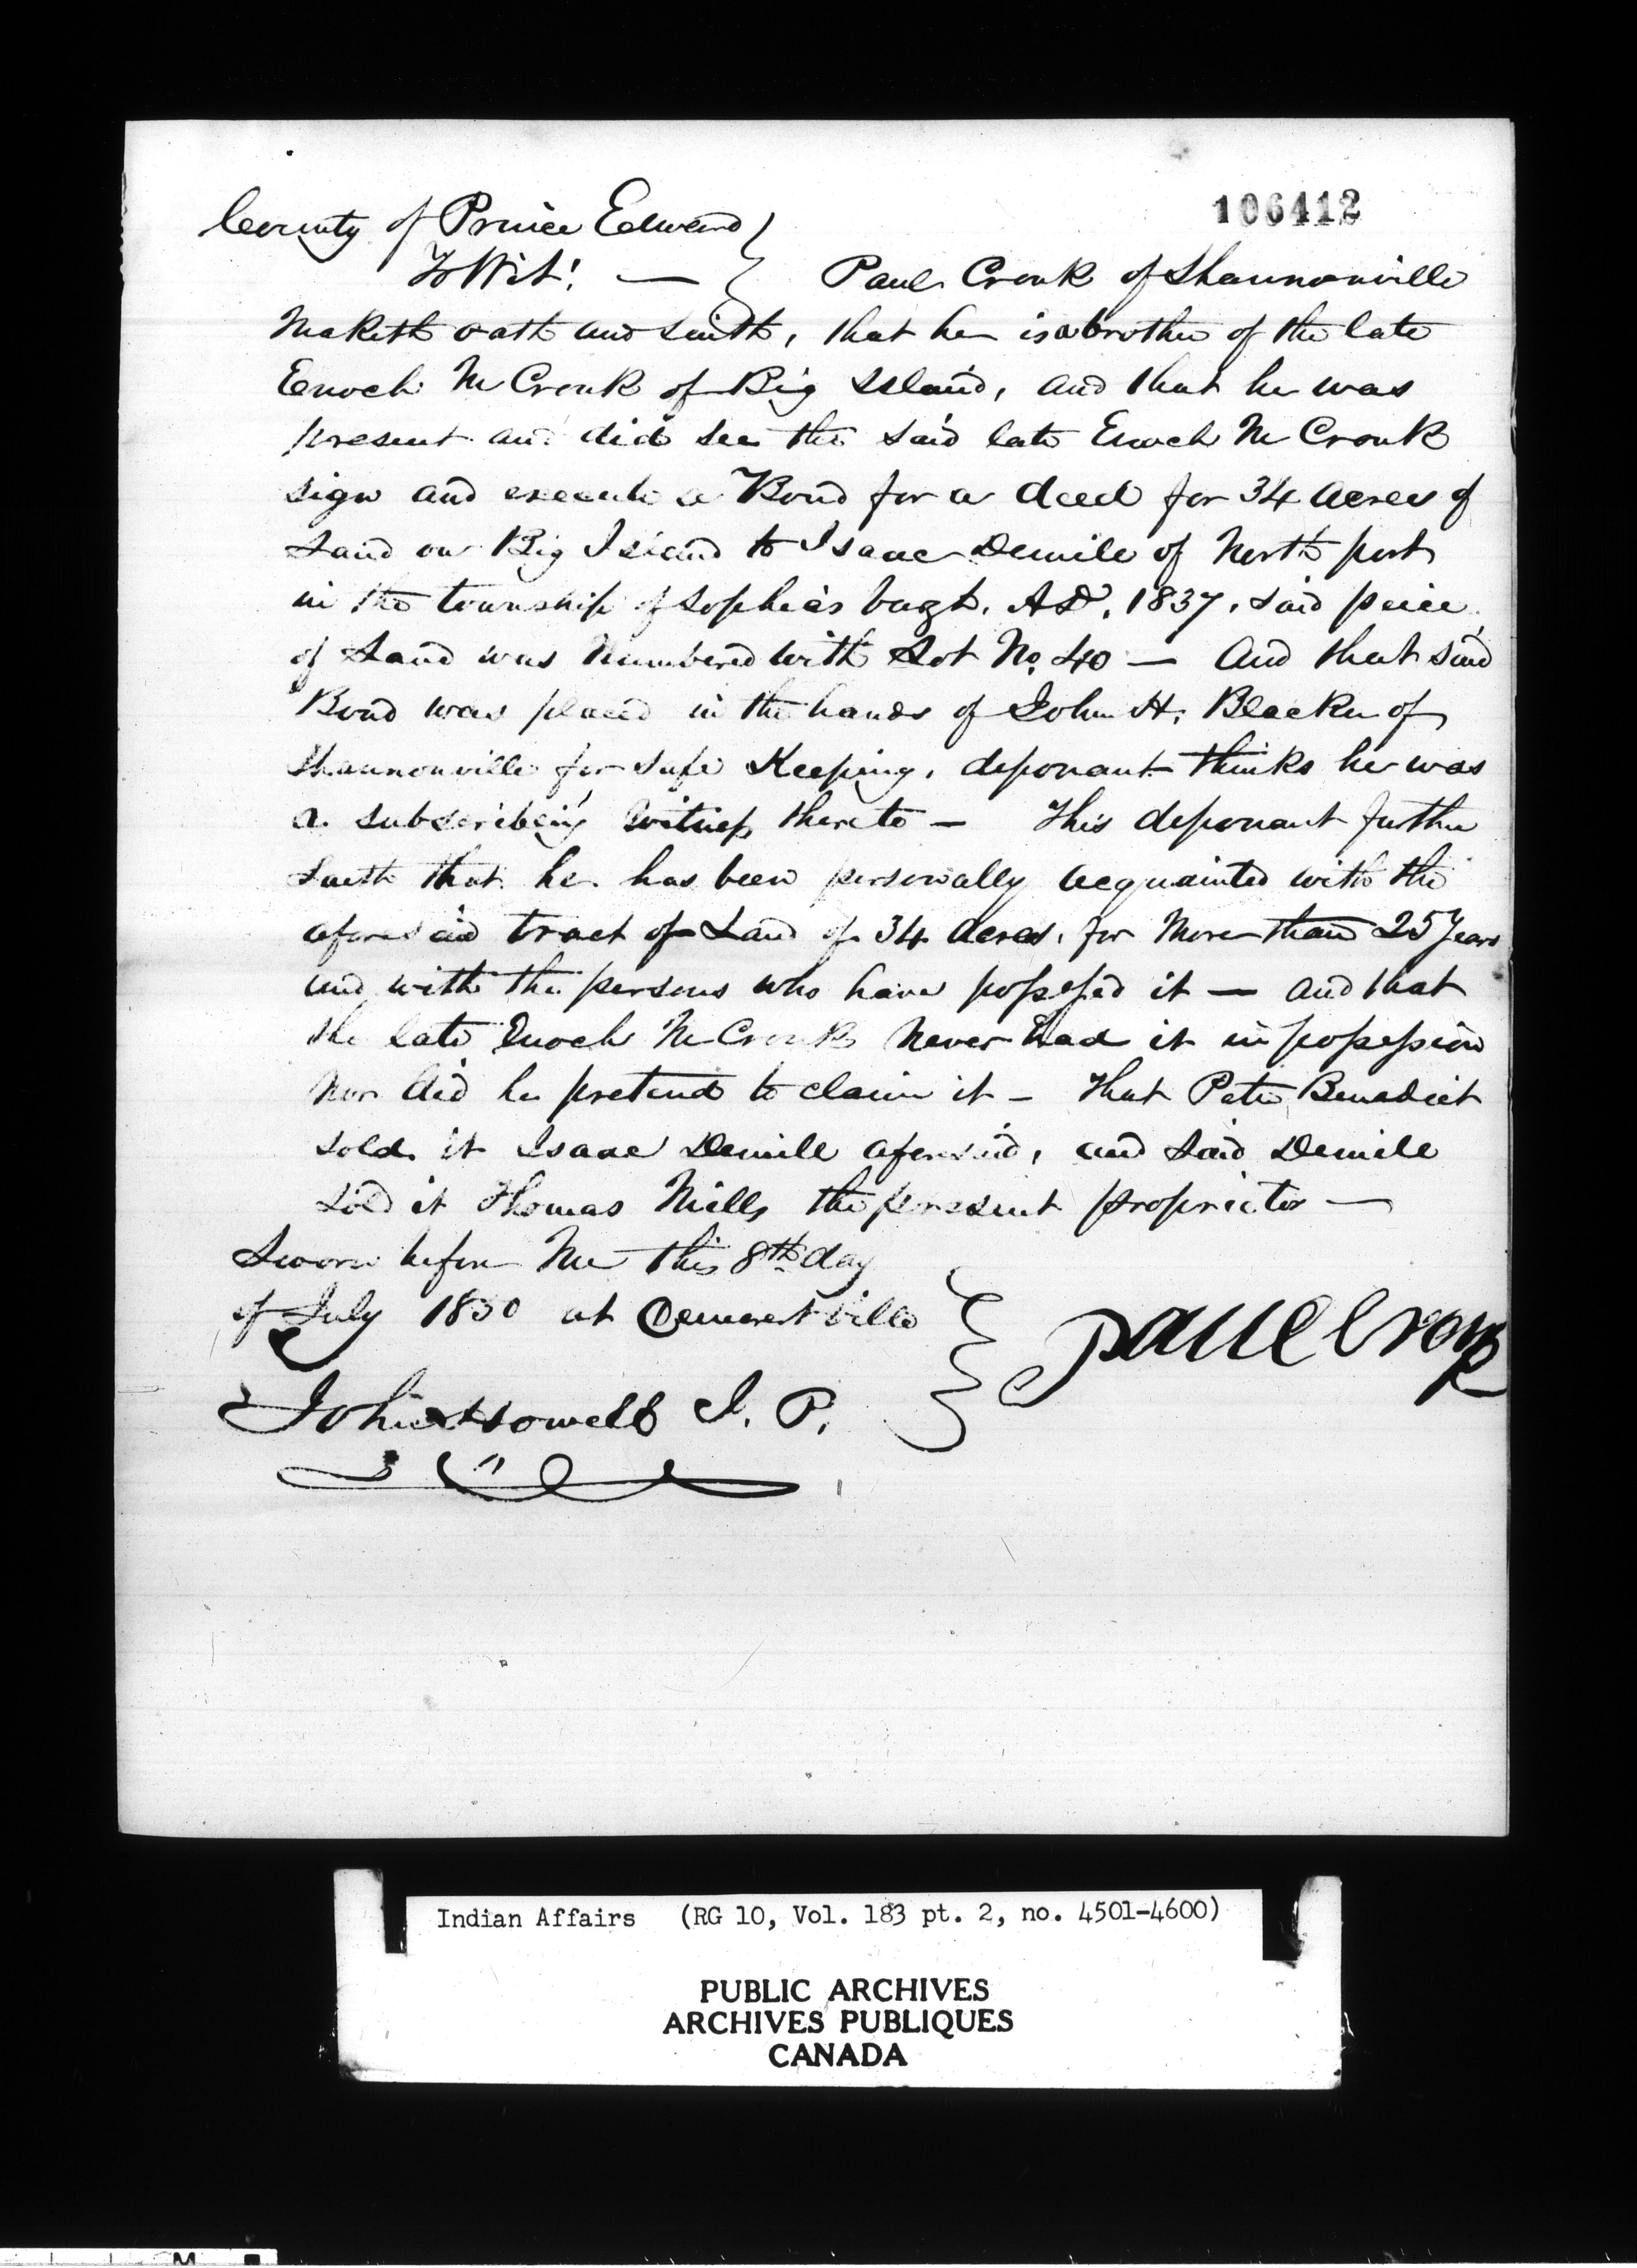 106412
County of Prince Edward
To Wit! — Paul Cronk of Shannonville
Maketh oath and saith, that he is a brother of the late
Enoch M Cronk of Big Island, and that he was
present and did see the said late Enoch M Cronk
sign and execute a Bond for a deed for 34 Acres of
Land on Big Island to Isaac Demile of North port
in the township of Sophiasburgh, AD, 1837, said peice
of Land was Numbered with Lot No. 40 — And that said
Bond was placed in the hands of John H. Blacker of
Shannonville for safe Keeping, deponant thinks he was
a subscribeing Witness thereto — This deponant further
saith that he has been personally acquainted with the
aforesaid tract of Land of 34 Acres, for More than 25 Years
and with the persons who have possessed it — And that
the late Enoch M Cronk Never had it in possession
Nor did he pretend to claim it — That Peter Benedict
sold it Isaac Demill aforesaid, and said Demile
sold it Thomas Mills the present proprietor —
Sworn before Me this 8th day
of July 1850 at Demorestville
Paul Cronk
John Howell J. P.
Indian Affairs (RG 10, Vol. 183 pt. 2, no. 4501-4600)
PUBLIC ARCHIVES
ARCHIVES PUBLIQUES
CANADA
M